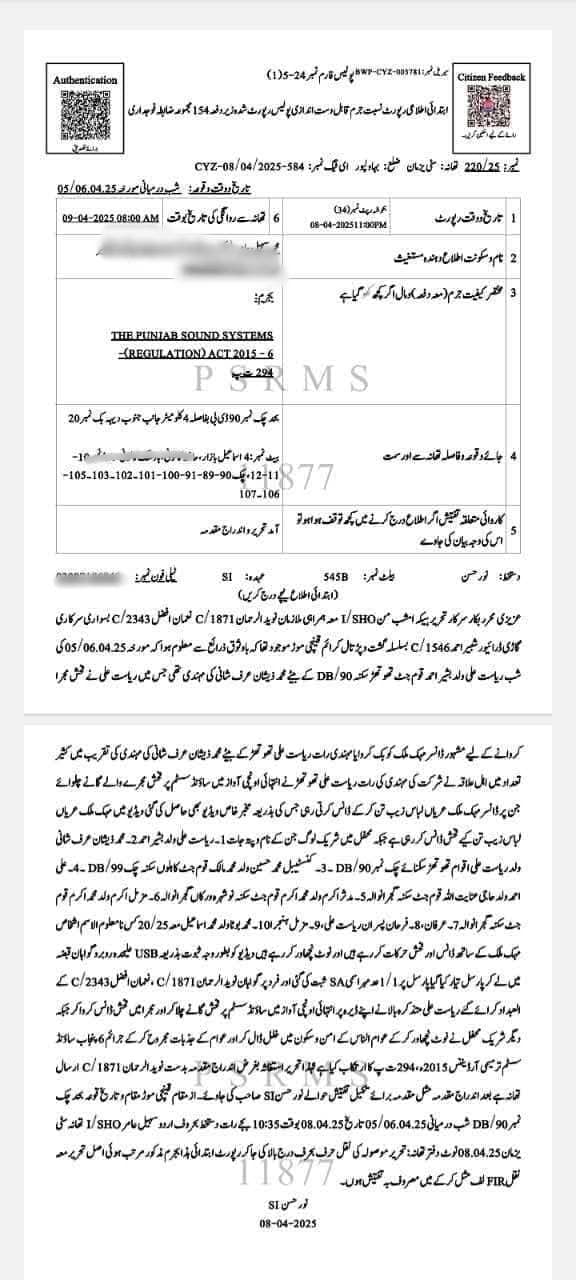 سیریل نمبر: BWP-CYZ-003781 پولیس فارم نمبر 24-5(1)
Authentication
Citizen Feedback
ابتدائی اطلاعی رپورٹ نسبت جرم قابل دست اندازی پولیس رپورٹ شدہ زیر دفعہ 154 مجموعہ ضابطہ فوجداری
برائے تصدیق
رائے کے لیے سکین کریں۔
نمبر: 220/25 تھانہ: سٹی یزمان ضلع: بہاولپور ای ٹیگ نمبر: CYZ-08/04/2025-584
تاریخ و وقت وقوعہ: شب درمیانی مورخہ 05/06.04.25
1 تاریخ و وقت رپورٹ بحوالہ رپٹ نمبر (34) 08-04-2025 11:00PM 6 تھانہ سے روانگی کی تاریخ بوقت 09-04-2025 08:00 AM
2 نام و سکونت اطلاع دہندہ مستغیث
3 مختصر کیفیت جرم (معہ دفعہ) و مال اگر کچھ کھو گیا ہے بجرم:
THE PUNJAB SOUND SYSTEMS
(REGULATION) ACT 2015 - 6-
294 ت پ
PSRMS
4 جائے وقوعہ و فاصلہ تھانہ سے اور سمت بحد چک نمبر 90 ڈی بی بفاصلہ 4 کلومیٹر جانب جنوب دیہہ بک نمبر 20
بیٹ نمبر: 4 اسماعیل بازار، 10-
11-12، چک 90-89-91-100-101-102-103-105-
106-107
11877
5 کاروائی متعلقہ تفتیش اگر اطلاع درج کرنے میں کچھ توقف ہوا ہو تو اس کی وجہ بیان کی جاوے آمد تحریر و اندراج مقدمہ
دستخط: نور حسن بیلٹ نمبر: 545B عہدہ: SI ٹیلی فون نمبر:
(ابتدائی اطلاع نیچے درج کریں)
عزیزی محرر بکار سرکار تحریر ہیکہ امشب من I/SHO معہ ہمراہی ملازمان نوید الرحمان C/1871 نعمان افضل C/2343 بسواری سرکاری
گاڑی ڈرائیور شبیر احمد C/1546 بسلسلہ گشت و پڑتال کرائم قینچی موڑ موجود تھا کہ باوثوق ذرائع سے معلوم ہوا کہ مورخہ 05/06.04.25 کی
شب ریاست علی ولد بشیر احمد قوم جٹ تھوتھڑ سکنہ 90/DB کے بیٹے محمد ذیشان عرف شانی کی مہندی تھی جس میں ریاست علی نے فحش مجرا
کروانے کے لیے مشہور ڈانسر مہک ملک کو بک کروایا مہندی رات ریاست علی تھوتھڑ کے بیٹے محمد ذیشان عرف شانی کی مہندی کی تقریب میں کثیر
تعداد میں اہل علاقہ نے شرکت کی مہندی کی رات ریاست علی تھوتھڑ نے انتہائی اونچی آواز میں ساؤنڈ سسٹم پر فحش مجرے والے گانے چلوائے
جن پر ڈانسر مہک ملک عریاں لباس زیب تن کر کے ڈانس کرتی رہی جس کی بذریعہ مخبر خاص ویڈیو بھی حاصل کی گئی ویڈیو میں مہک ملک عریاں
لباس زیب تن کیے فحش ڈانس کر رہی ہے جبکہ محفل میں شریک لوگ جن کے نام و پتہ جات 1۔ ریاست علی ولد بشیر احمد 2۔ محمد ذیشان عرف شانی
ولد ریاست علی اقوام تھوتھڑ سکنائے چک نمبر 90/DB 3۔ کنسٹیبل محمد حسین ولد محمد مالک قوم جٹ کاہلوں سکنہ چک 99/DB 4۔ علی
احمد ولد حاجی عنایت اللہ قوم جٹ سکنہ گوجرانوالہ 5۔ مدثر اکرم ولد محمد اکرم قوم جٹ سکنہ نوشہرہ ورکاں گوجرانوالہ 6۔ مزمل اکرم ولد محمد اکرم قوم
جٹ سکنہ گوجرانوالہ 7۔ عرفان، 8۔ فرحان پسران ریاست علی، 9۔ مزمل بھنجر 10۔ محمد بوٹا ولد محمد اسماعیل معہ 20/25 کس نامعلوم الاسم اشخاص
مہک ملک کے ساتھ ڈانس اور فحش حرکات کر رہے ہیں اور نوٹ نچھاور کر رہے ہیں ویڈیو کو بطور وجہ ثبوت بذریعہ USB علیحدہ روبرو گواہان قبضہ
میں لے کر پارسل تیار کیا گیا پارسل پر 1/1 عدد مہر SA ثبت کی گئی اور فرد پر گواہان نوید الرحمان C/1871، نعمان افضل C/2343 کے
العبد ادا کرائے گئے ریاست علی متذکرہ بالا نے اپنے ڈیرہ پر انتہائی اونچی آواز میں ساؤنڈ سسٹم پر فحش گانے چلا کر اور مجرا میں فحش ڈانس کروا کر جبکہ
دیگر شریک محفل نے نوٹ نچھاور کر کے عوام الناس کے امن و سکون میں خلل ڈال کر اور عوام کے جذبات مجروح کر کے جرائم 6 پنجاب ساؤنڈ
سسٹم ترمیمی آرڈیننس 2015ء، 294 ت پ کا ارتکاب کیا ہے لہٰذا تحریر استغاثہ بغرض اندراج مقدمہ بدست نوید الرحمان C/1871 ارسال
PSRMS
تھانہ ہے بعد اندراج مقدمہ مثل مقدمہ برائے تکمیل تفتیش حوالے نور حسن SI صاحب کی جائے۔ از مقام قینچی موڑ مقام و تاریخ وقوعہ بحد چک
نمبر 90/DB شب درمیانی 05/06.04.25 تاریخ 08.04.25 بوقت 10:35 بجے رات دستخط بحروف اردو سہیل عامر I/SHO تھانہ سٹی
یزمان 08.04.25 نوٹ دفتر تھانہ: تحریر موصولہ کی نقل حرف بحرف درج بالا کی جا کر رپورٹ ابتدائی ہذا بجرم مذکور مرتب ہوئی اصل تحریر معہ
11877
نقل FIR لف مثل کر کے میں مصروف بہ تفتیش ہوں۔
نور حسن SI
08-04-2025